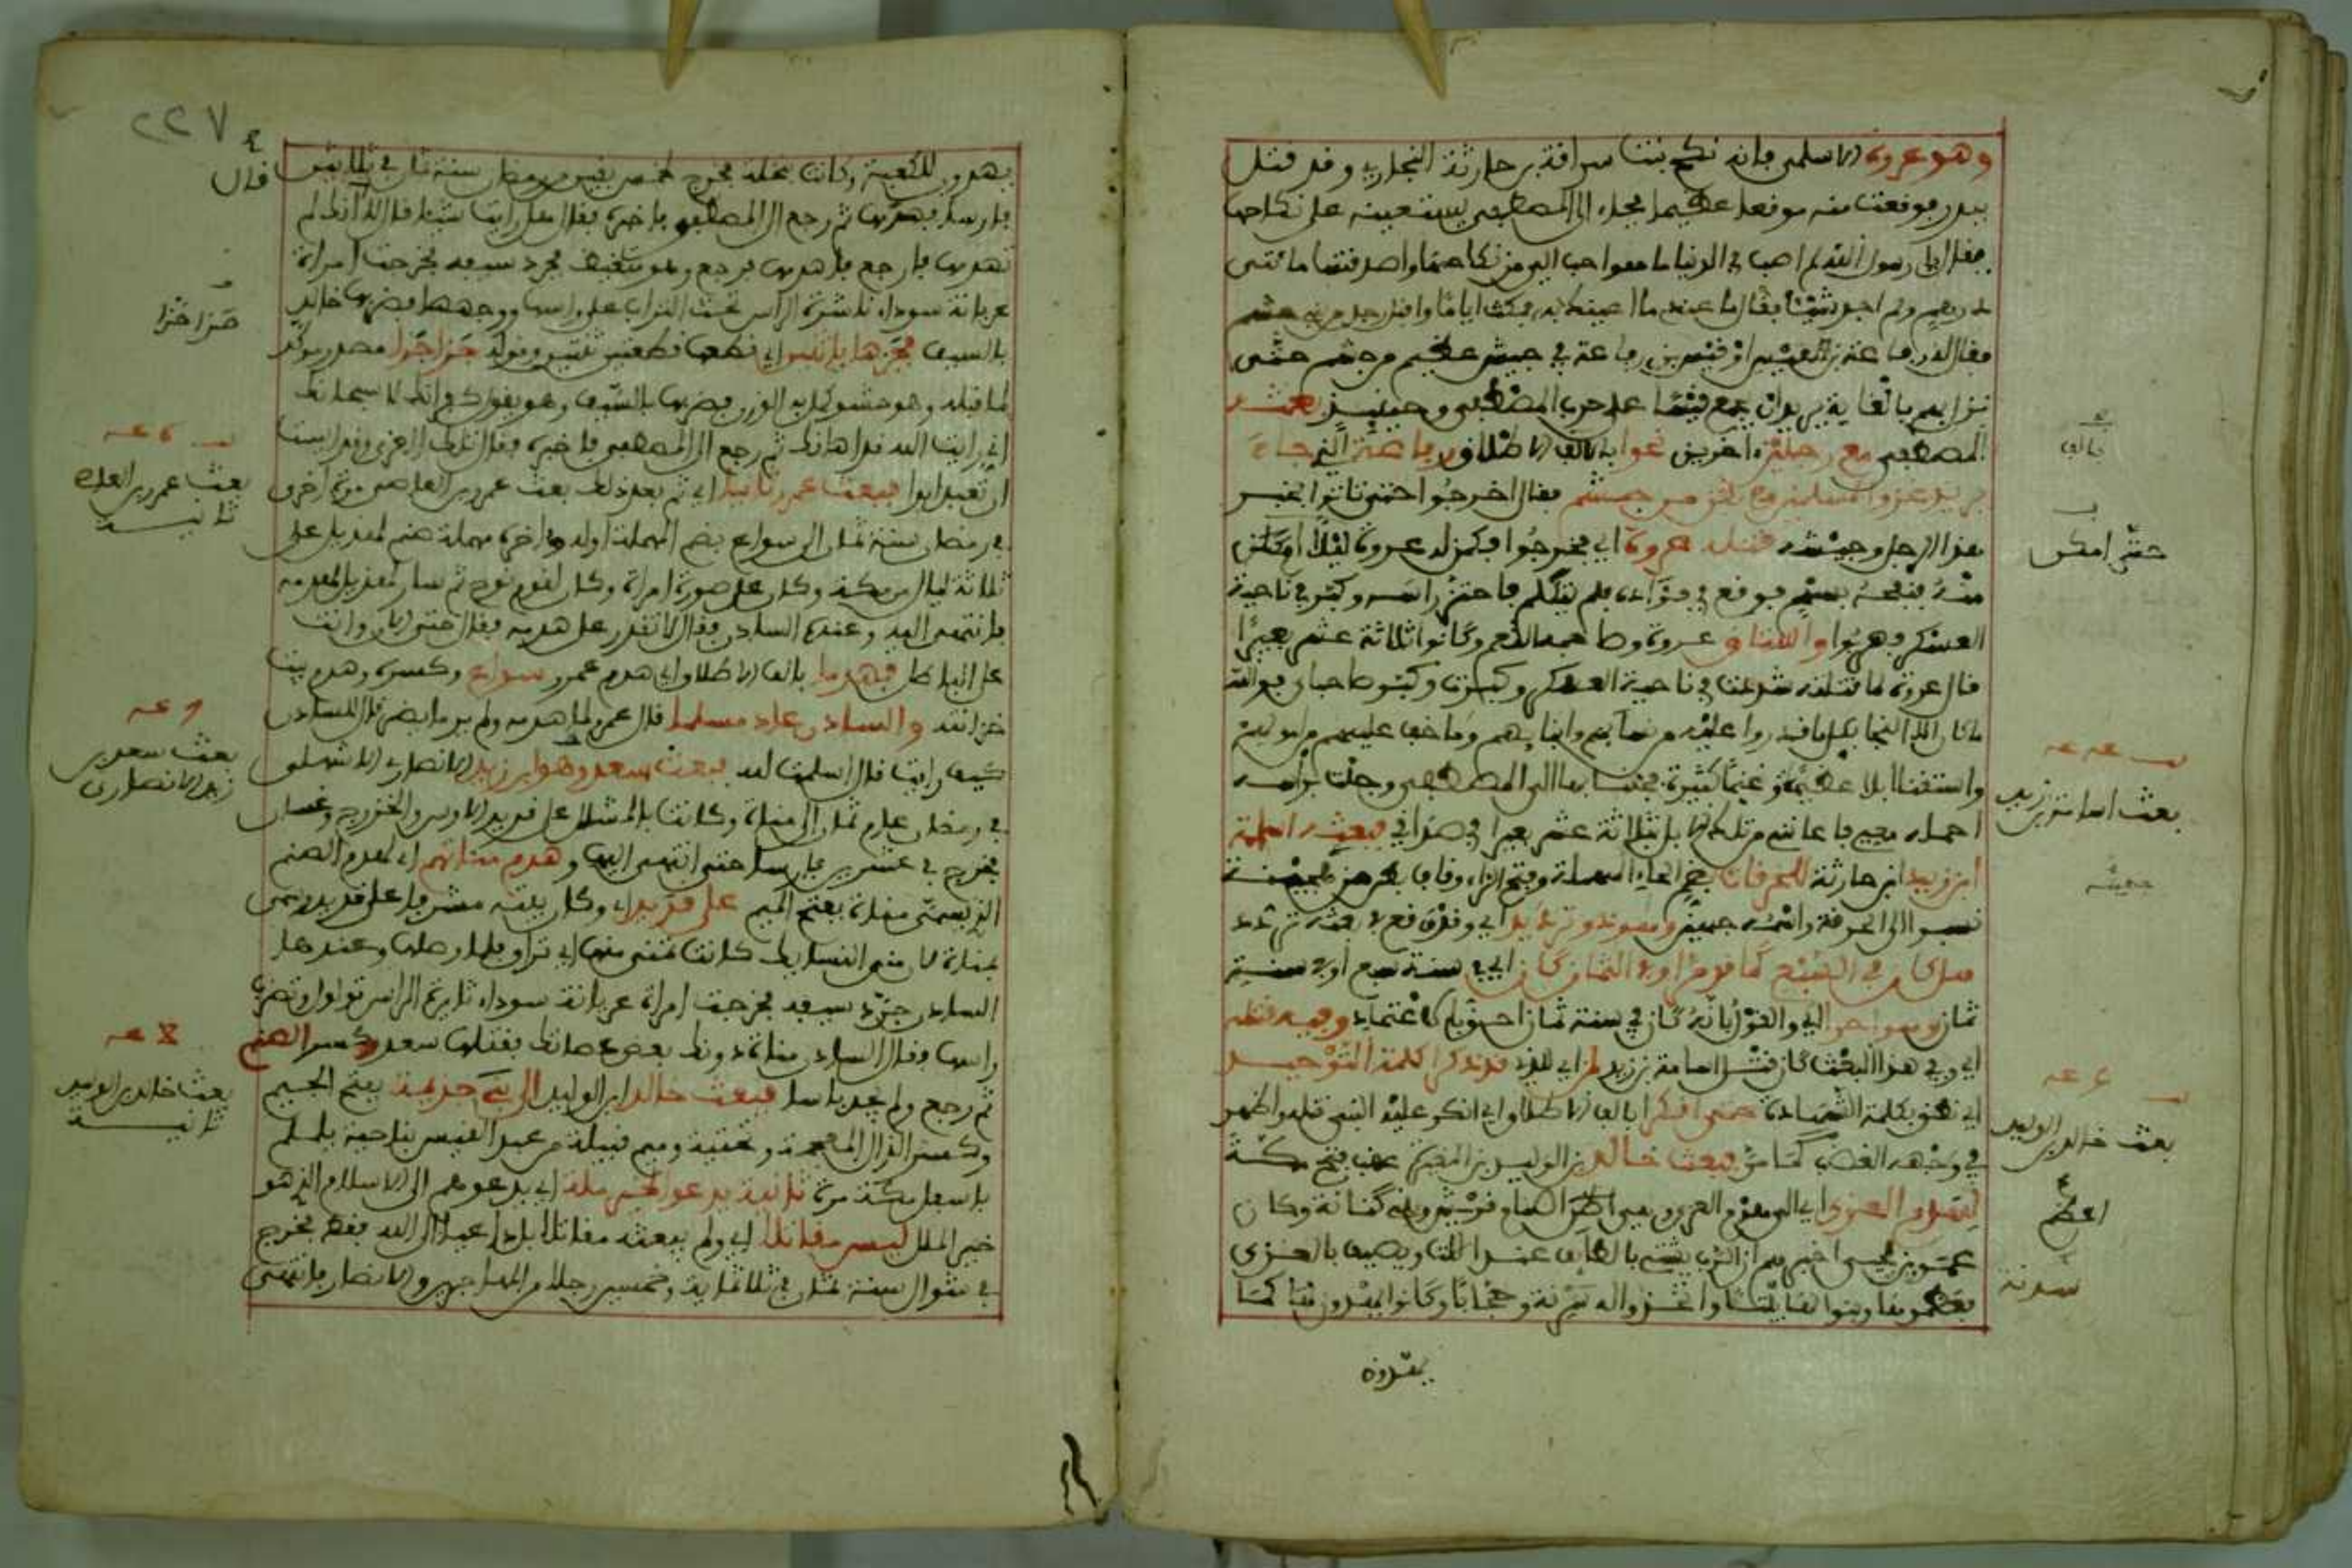 وهو عروة الاسلمي فإنه نكح بنت سراقة بن حارثة النجارية وقد قتل
ببدر فوقعت منه موقعا عظيما فجاء إلى المصطفى يستعينه على نكاحها
فقال يا رسول الله لم اصب في الدنيا ما هو احب الي من نكاحها واصدقتها مائتي
درهم ولم اجد شيئا فقال ما عندي ما اعينك به فمكث اياما واقبل رجل من جشم
يقال له رفاعة بن القيس او قيس بن رفاعة في جيش عظيم من جشم حتى
نزل بهم بالغابة يريد ان يجمع قيسا على حرب المصطفى وحينئذ بعثه
المصطفى مع رجلين اخرين نحوا بألف الاطلاق رفاعة الذي جاء
يريد غزو المسلمين من جشم فقال اخرجوا حتى تاتوا بخبر
هذا الرجل وجيشه فقتله عروة اي فخرجوا فكمن له عروة ليلا
منه فنفحه بسهم فوقع في فؤاده فلم يتكلم فاحتز راسه وكبر في ناحية
العسكر فهربوا واستاق عروة وصاحباه النعم وكانوا ثلاثة عشر بعيرا
قال عروة لما قتلته شددت في ناحية العسكر وكبرت وكبر صاحباي فوالله
ما كان الا النجا بكل ما قدروا عليه من نسائهم وابنائهم وما خف عليهم من اموالهم
واستقنا ابلا عظيمة وغنما كثيرة فجئنا بها الى المصطفى وجئت براسه
احمله معي فاعانني من تلك الابل بثلاثة عشر بعيرا في صداقي فبعثه اسامة
ابن زيد ابن حارثة للحرقات بضم الحاء المهملة وفتح الراء وقاف بطن من جهينة
نسبوا الى الحرقة واسمه جهيش
كان في السبع كما قدم او في الثمان كان اي في سنة سبع او في سنة
ثمان
اي وفي هذا البعث كان قتل اسامة بن زيد لمن اي للذي قد ذكر كلمة التوحيد
اي نطق بكلمة الشهادة حتى انكرا بالف الاطلاق اي انكر عليه النبي قتله واظهر
في وجهه الغضب كما مر فبعث خالد بن الوليد بن المغيرة عقب فتح مكة
لهدم العزى اي الى هدم العزى وهي اصنام قريش وبني كنانة وكان
عمرو بن لحي اخبرهم ان الرب يشتي بالطائف عند اللات ويصيف بالعزى
فعظموها وبنوا لها بيتا واتخذوا له سدنة وحجابا وكانوا يهدون لها كما
يهدون
بالف
حتى امكن
بعث اسامة بن زيد
جهينة
بعث خالد بن الوليد
اعظم
سدنة
٢٢٧
يهدون للكعبة وكانت بنخلة فخرج لخمس بقين من رمضان سنة ثمان في ثلاثين
فارسا فهدمها ثم رجع الى المصطفى فاخبره فقال هل رايت شيئا قال لا قال انك لم
تهدمها فارجع فاهدمها فرجع وهو متغيظ فجرد سيفه فخرجت امراة
عريانة سوداء ناشرة الراس تحث التراب على راسها ووجهها فضربها خالد
بالسيف فجزها باثنين اي قطعها قطعتين ثنتين وقوله جزا جزا مصدر مؤكد
لما قبله وهو حشو كمل به الوزن فضربها بالسيف وهو يقول كفرانك لا سبحانك
اني رايت الله قد اهانك ثم رجع الى المصطفى فاخبره فقال تلك العزى وقد ايست
ان تعبد ابدا فبعث عمرو ثانيا اي ثم بعد ذلك بعث عمرو بن العاصي مرة اخرى
في رمضان سنة ثمان الى سواع بضم المهملة اوله واخره مهملة صنم لهذيل على
ثلاثة ليال من مكة وكان على صورة امراة وكان لقوم نوح ثم صار لهذيل لهدمه
فانتهى اليه وعنده السادن فقال لا تقدر على هدمه فقال حتى الان وانت
على الباطل فهدما بالف الاطلاق اي هدم عمرو سواع وكسره وهدم بيت
خزانته والسادن عاد مسلما قال عمرو لما هدمه ولم ير ما يضر قال للسادن
كيف رايت قال اسلمت لله فبعث سعد وهو ابن زيد الانصاري الاشهلي
في رمضان عام ثمان الى مناة وكانت بالمشلل على قديد للاوس والخزرج وغسان
فخرج في عشرين فارسا حتى انتهى اليها وهدم مناتهم اي لهدم الصنم
الذي يسمى مناة بفتح الميم على قديد اي وكان بيته مشرفا على قديد وسمي
بمناة لان دم النسايك كانت تمنى عنها اي تراق فلما وصلها وعندها
السادن جرد سيفه فخرجت امراة عريانة سوداء ثايرة الراس تولول وتضرب
راسها فقال السادن مناة دونك بعض عصاتك فقتلها سعد وكسر الصنم
ثم رجع ولم يجد باسا فبعث خالد ابن الوليد الى بني جذيمة بفتح الجيم
وكسر الذال المعجمة وتحتية وميم قبيلة من عبد القيس بناحية يلملم
باسفل مكة مرة ثانية يدعو لخير ملة اي يدعوهم الى الاسلام الذي هو
خير الملل ليس مقاتلا اي ولم يبعثه مقاتلا بل داعيا الى الله فقط فخرج
في شوال سنة ثمان في ثلاثماية وخمسين رجلا من المهاجرين والانصار فانتهى
قال
جزا جزا
بعث عمرو بن العاص
ثانية
بعث سعد بن
زيد الانصاري
بعث خالد بن الوليد
ثانية